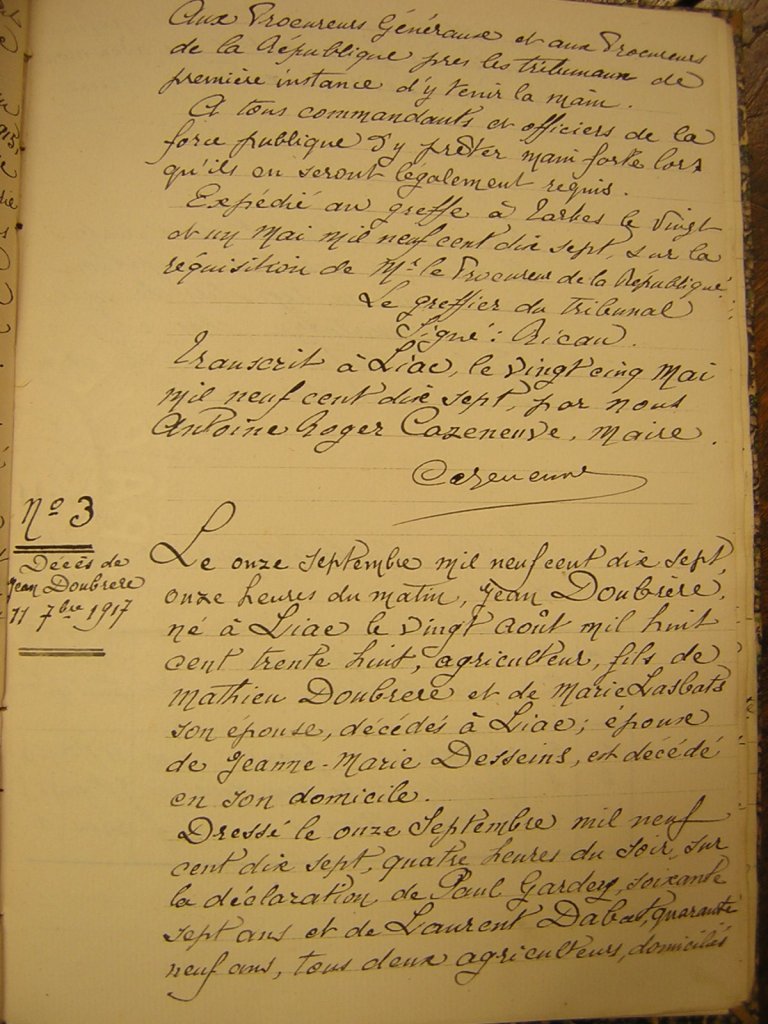 Aux Procureurs Généraux et aux Procureurs
de la République près les tribunaux de
première instance d'y tenir la main.
A tous commandants et officiers de la
force publique d'y prêter main forte lors
qu'ils en seront légalement requis.
Expédié au greffe à Tarbes le vingt
et un Mai mil neuf cent dix sept, sur la
réquisition de Mr le Procureur de la République
Le greffier du Tribunal
Signé : Ricau.
Transcrit à Liac, le vingt cinq Mai
mil neuf cent dix sept, par nous
Antoine Roger Cazeneuve, Maire.
Cazeneuve
No 3
Décès de
Jean Doubrère
11 7bre 1917
Le onze Septembre mil neuf cent dix sept,
onze heures du matin, Jean Doubrère,
né à Liac le vingt Août mil huit
cent trente huit, agriculteur, fils de
Mathieu Doubrère et de Marie Lasbats
son épouse, décédés à Liac; époux
de Jeanne-Marie Desseins, est décédé
en son domicile.
Dressé le onze Septembre mil neuf
cent dix sept, quatre heures du soir, sur
la déclaration de Paul Gardey, soixante
sept ans et de Laurent Dabat, quarante
neuf ans, tous deux agriculteurs, domiciliés